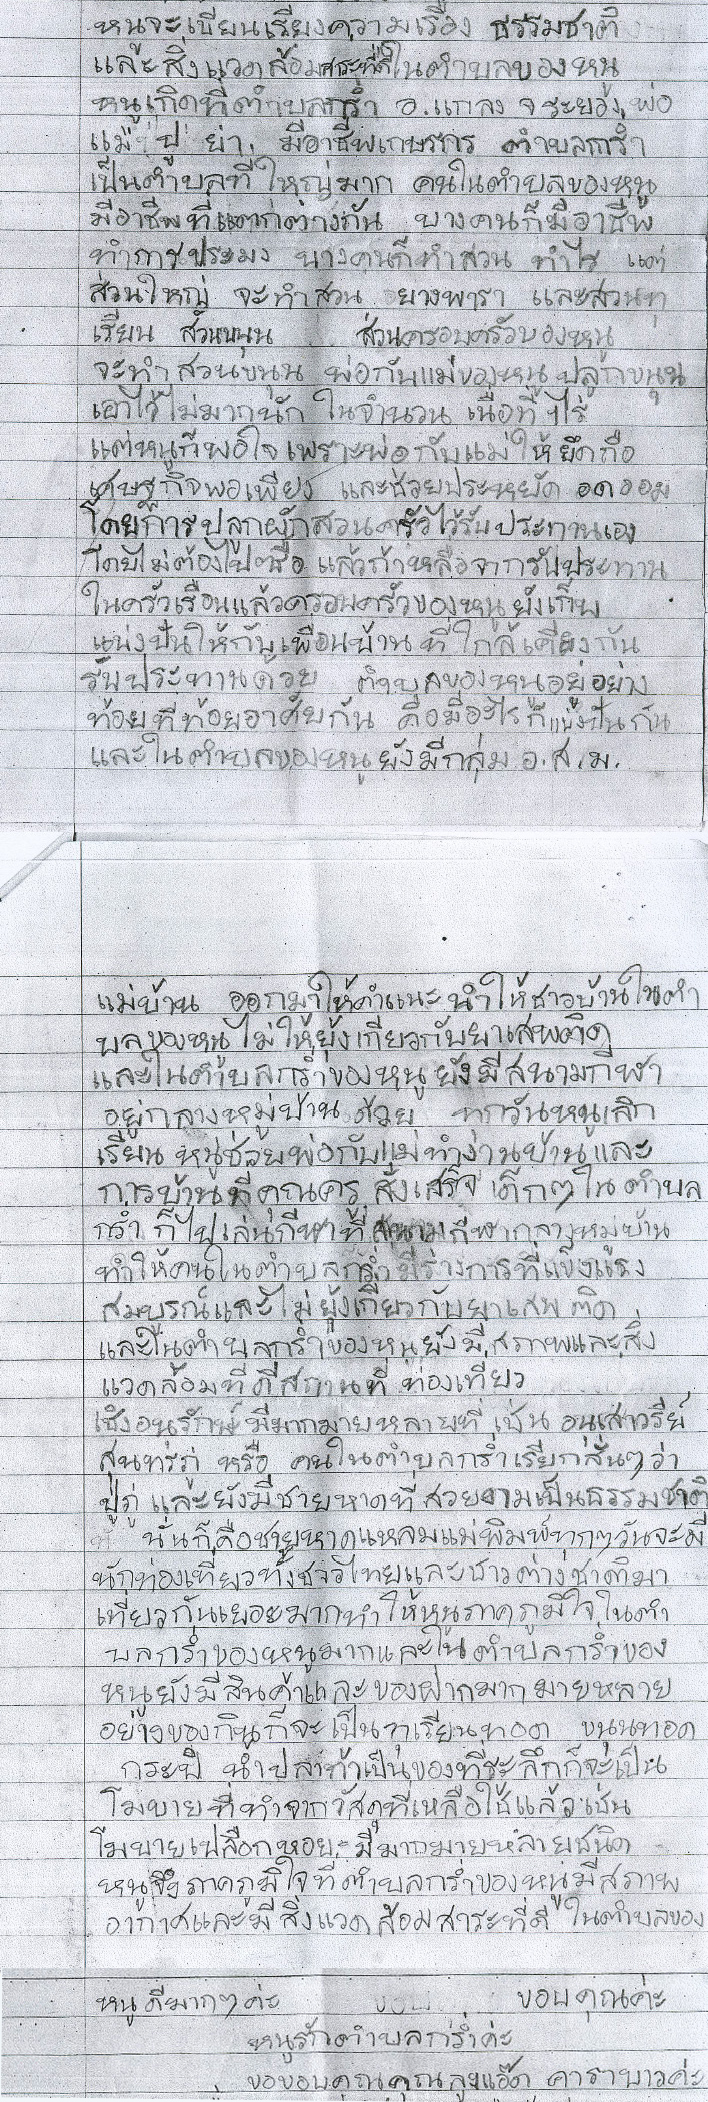 หนูจะเขียนเรียงความเรื่อง ธรรมชาติ
และสิ่งแวดล้อมสาระที่ดีในตำบลของหนู
หนูเกิดที่ตำบลกร่ำ อ.แกลง จ.ระยอง พ่อ
แม่ ปู่ ย่า มีอาชีพเกษรกร ตำบลกร่ำ
เป็นตำบลที่ใหญ่มาก คนในตำบลของหนู
มีอาชีพที่แตกต่างกัน บางคนก็มีอาชีพ
ทำการประมง บางคนก็ทำสวน ทำไร่ แต่
ส่วนใหญ่ จะทำสวน ยางพารา และสวนทุ
เรียน สวนขนุน ส่วนครอบครัวของหนู
จะทำสวนขนุน พ่อกับแม่ของหนูปลูกขนุน
เอาไว้ไม่มากนัก ในจำนวน เนื้อที่ ไร่
แต่หนูก็พอใจเพราะพ่อกับแม่ให้ยึดถือ
เศษฐกิจพอเพียง และช่วยประหยัด อดออม
โดยการปลูกผักสวนครัวไว้รับประทานเอง
โดยไม่ต้องไปซื้อ แล้วถ้าเหลือจากรับประทาน
ในครัวเรือนแล้วครอบครัวของหนูยังเก็บ
แบ่งปันให้กับเพื่อนบ้านที่ใกล้เคียงกัน
รับประทานด้วย ตำบลของหนูอยู่อย่าง
ท้อยทีท้อยอาศัยกัน คือมีอะไรก็แบ่งปันกัน
และในตำบลของหนูยังมีกลุ่ม อ.ส.ม.
แม่บ้าน ออกมาให้คำแนะนำให้ชาวบ้านในตำ
บลของหนูไม่ให้ยุ้งเกี่ยวกับยาเสพติด
และในตำบลกร่ำของหนูยังมีสนามกีฬา
อยู่กลางหมู่บ้านด้วย ทุกวันหนูเลิก
เรียน หนูช่วยพ่อกับแม่ทำงานบ้านและ
การบ้านที่คุณครูสั่งเสร็จ เด็กๆในตำบล
กร่ำ ก็ไปเล่นกีฬาที่สนามกีฬากลางหมู่บ้าน
ทำให้คนในตำบลกร่ำมีร่างการที่แข็งแรง
สมบูรณ์และไม่ยุ้งเกี่ยวกับยาเสพติด
และในตำบลกร่ำของหนูยังมีสภาพและสิ่ง
แวดล้อมที่ดีสถานที่ ท่องเที่ยว
เชิงอนุรักษ์ มีมากมายหลายที่ เช่น อนุเสาวรีย์
สุนทรภู่ หรือ คนในตำบลกร่ำเรียกสั้นๆว่า
ปู่ภู่ และยังมีชายหาดที่สวยงามเป็นธรรมชาติ
นั่นก็คือชายหาดแหลมแม่พิมพ์ทุกๆวันจะมี
นักท่องเที่ยวทั้งชาวไทยและชาวต่างชาติมา
เที่ยวกันเยอะมากทำให้หนูภาคภูมิใจในตำ
บลกร่ำของหนูมากและในตำบลกร่ำของ
หนูยังมีสินค้าและของฝากมากมายหลาย
อย่างของกินก็จะเป็นทุเรียนทอด ขนุนทอด
กระปิ น้ำปลาถ้าเป็นของที่ระลึกก็จะเป็น
โมบายที่ทำจากวัสดุที่เหลือใช้แล้วเช่น
โมบายเปลือกหอย มีมากมายหลายชนิด
หนูจึงภาคภูมิใจที่ตำบลกร่ำของหนูมีสภาพ
อากาศและมีสิ่งแวดล้อมสาระที่ดี ในตำบลของ
หนูดีมากๆค่ะ ขอบคุณค่ะ
หนูรักตำบลกร่ำค่ะ
ขอขอบคุณคุณลุงแอ๊ด คาราบาวค่ะ